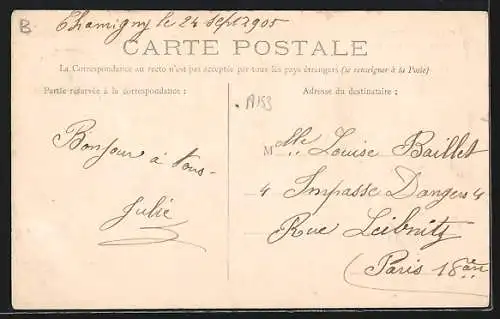 B
Chamigny le 24 sept 1905
CARTE POSTALE
La Correspondance au recto n'est pas acceptée par tous les pays étrangers (se renseigner à la Poste)
Partie réservée à la correspondance :
Adresse du destinataire :
A153
Bonjour à Vous-
Julie
Mlle Louise Baillet
4 Impasse Dangers 4
Rue Leibnitz
Paris 18ème